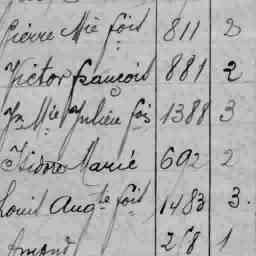 Pierre Mie fois 811 2
Victor françois 881 2
Jn Mie Julien fois 1388 3
Isidore Marie 692 2
Louis Augte fois 1483 3.
Amand 268 1